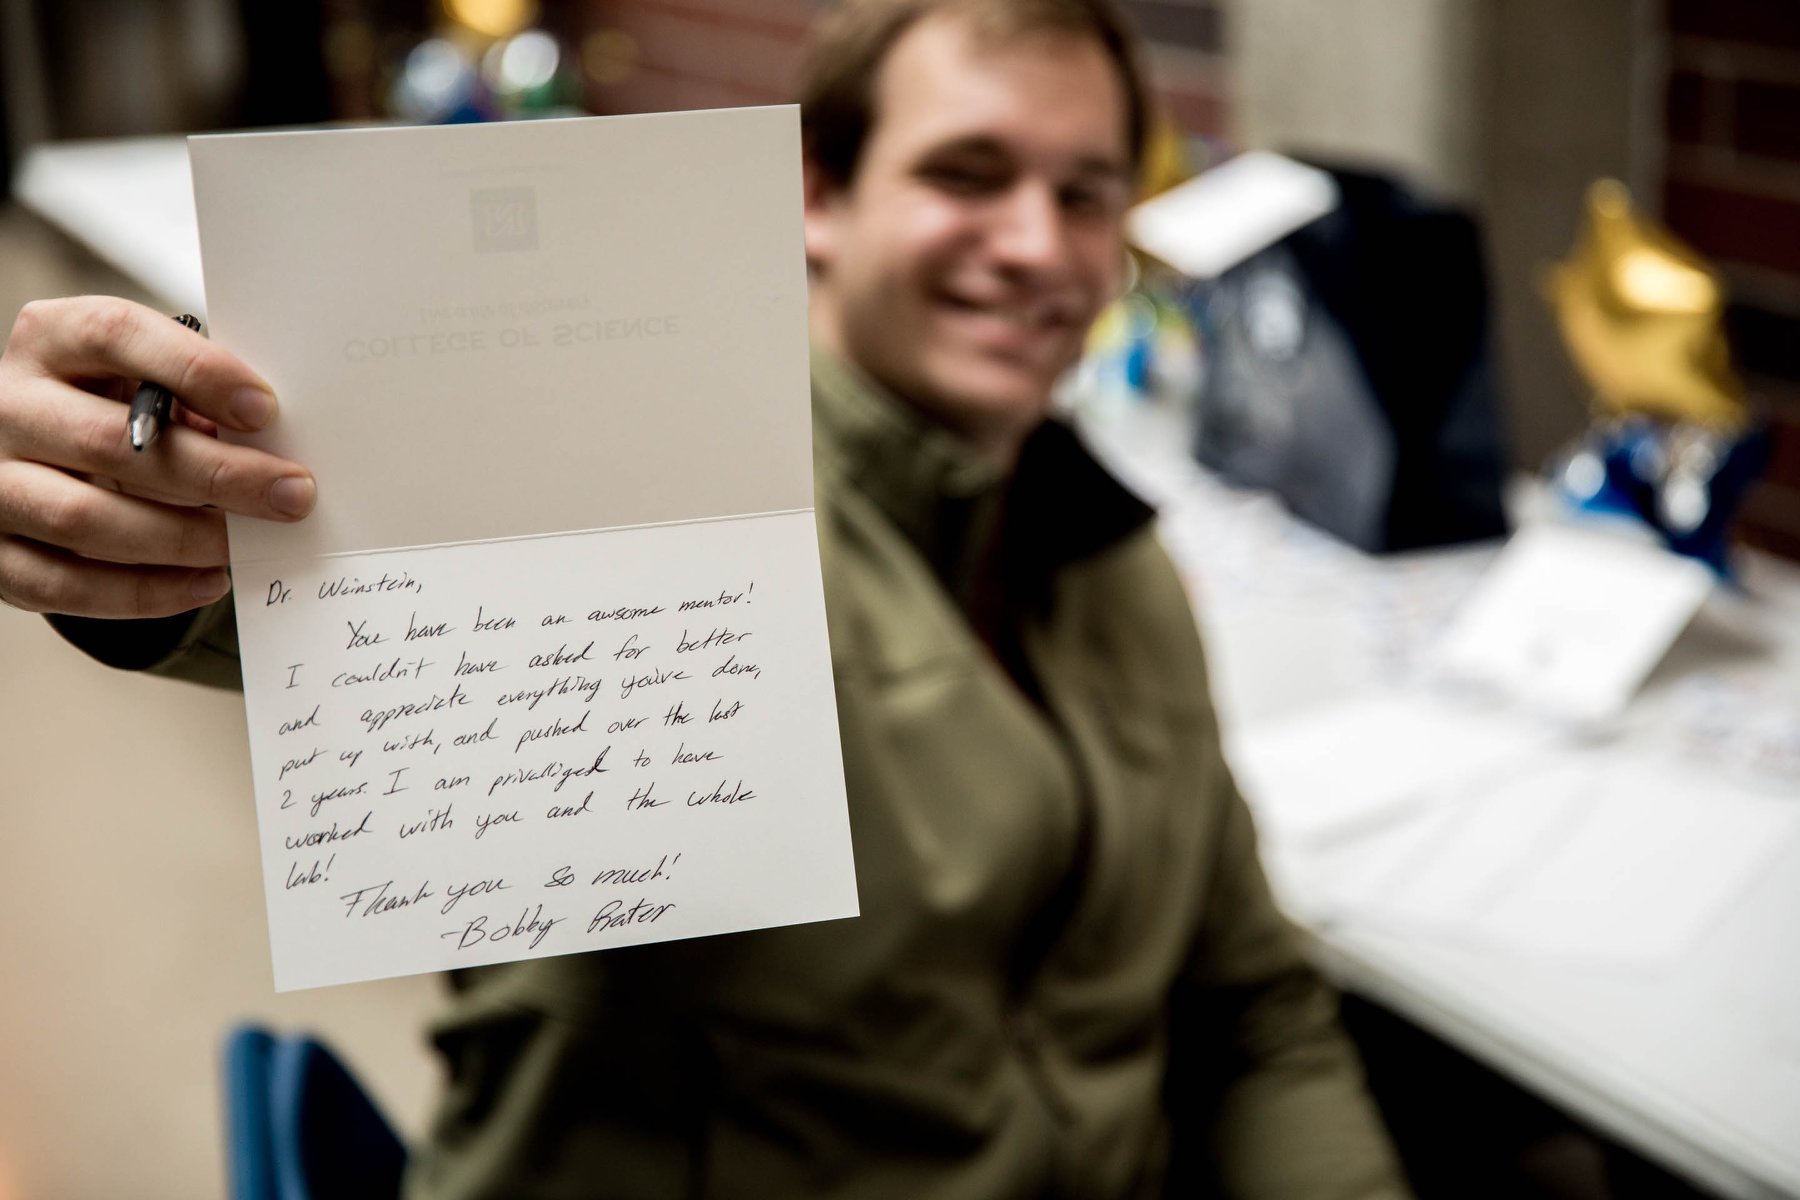 COLLEGE OF SCIENCE
Dr. Weinstein,
You have been an awsome mentor!
I couldn't have asked for better
and appreciate everything you've done,
put up with, and pushed over the last
2 years. I am privalliged to have
worked with you and the whole
lab!
Thank you so much!
-Bobby Prater